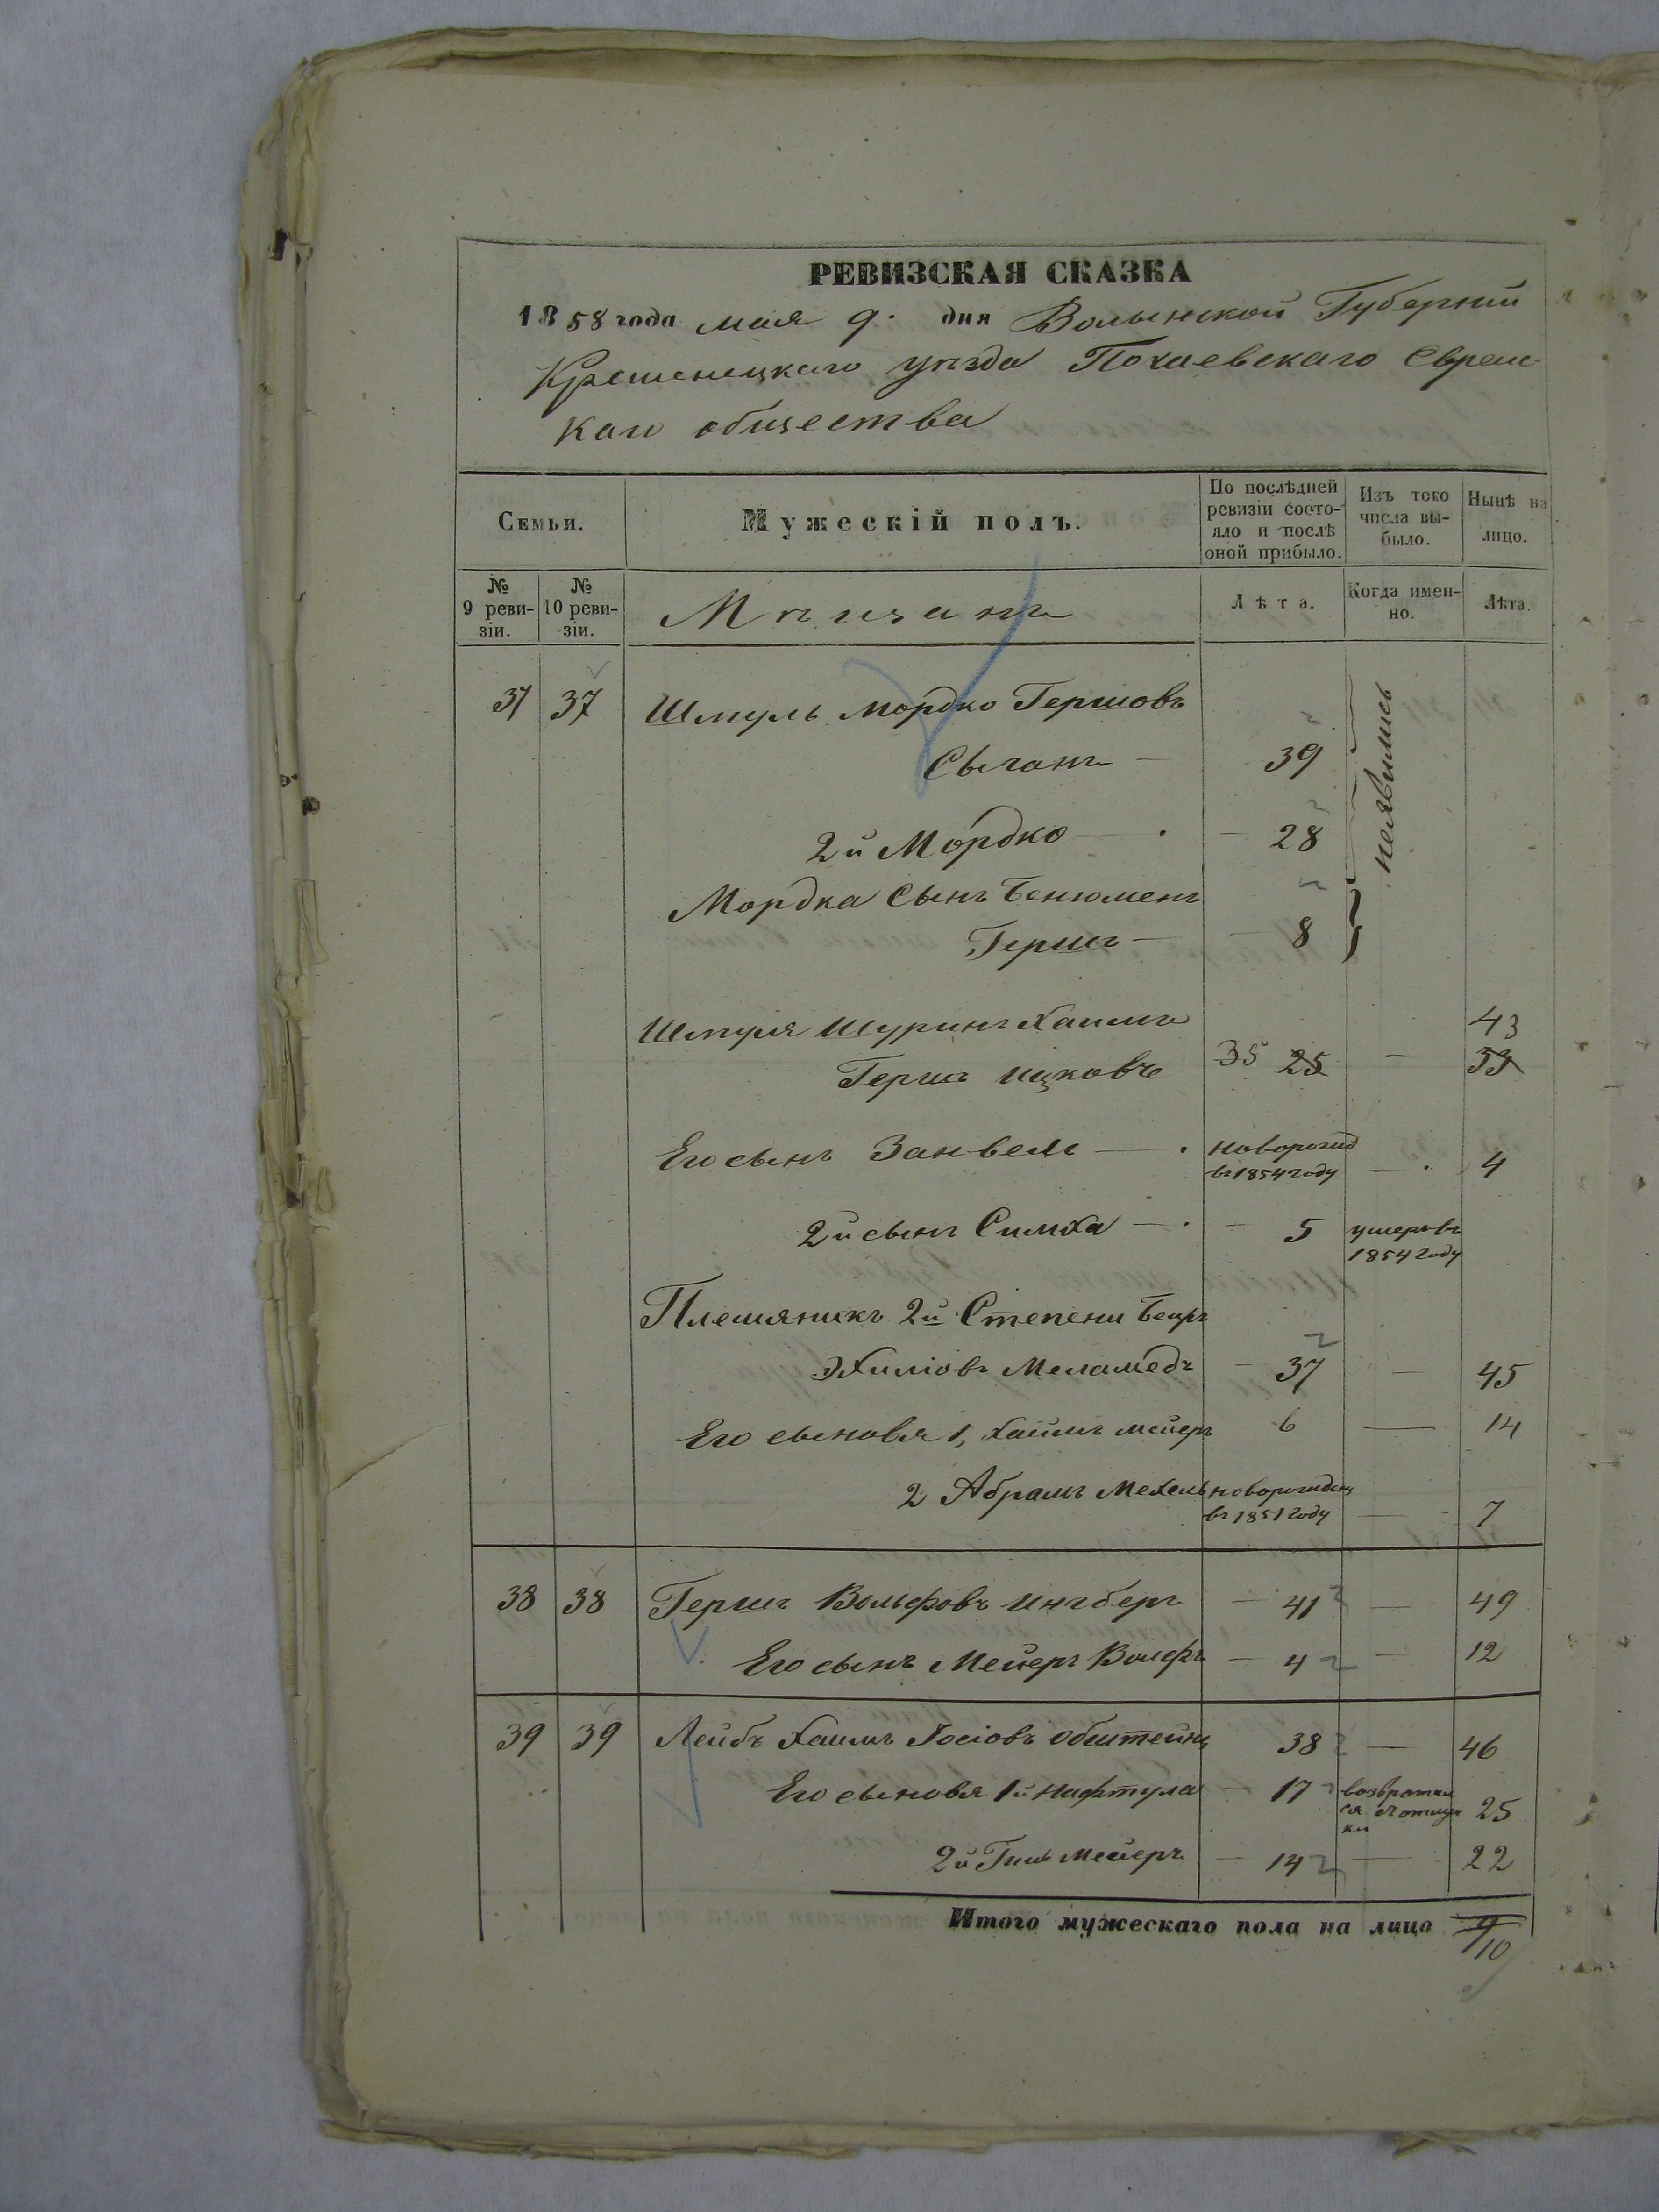 РЕВИЗСКАЯ СКАЗКА
1858 года мая 9. дня Волынской Губернии
Кременецкаго уѣзда Почаевскаго Еврейс-
каго общества
Семьи.
Мужескій полъ.
По послѣдней ревизіи состо-яло и послѣ оной прибыло.
Изъ того числа вы-было.
Нынѣ на лицо.
№ 9 реви-зіи.
№ 10 реви-зіи.
Мѣщанъ
Лѣта.
Когда имен-но.
Лѣта.
37 37 Шмуль Мордко Гершовъ
39
2й Мордко — 28
неявились
Мордка Сынъ Бенюменъ
Гершъ — 8
Шмуля Шуринъ Хаимъ 43
Гершъ Ицковъ 35 25 — 53
Его сынъ Занвель — новорожд — 4
въ 1854 году
2й сынъ Симха — 5 умеръ въ
1854 году
Племяникъ 2й Степени Беиръ
Эхиліовъ Меламедъ — 37 — 45
Его сыновья 1, Хаимъ Мейеръ 6 — 14
2 Абрамъ Мехель новорожденъ
въ 1851 году — 7
38 38 Гершъ Вольфовъ Ингберъ — 41 — 49
Его сынъ Мейеръ Вольфъ — 4 — 12
39 39 Лейбъ Хаимъ Іосіовъ Обштейнъ 38 — 46
Его сыновья 1й Нафтула — 17 возвратил
ся с отлуч
ки 25
2й Мейеръ — 14 — 22
Итого мужескаго пола на лицо 9
10